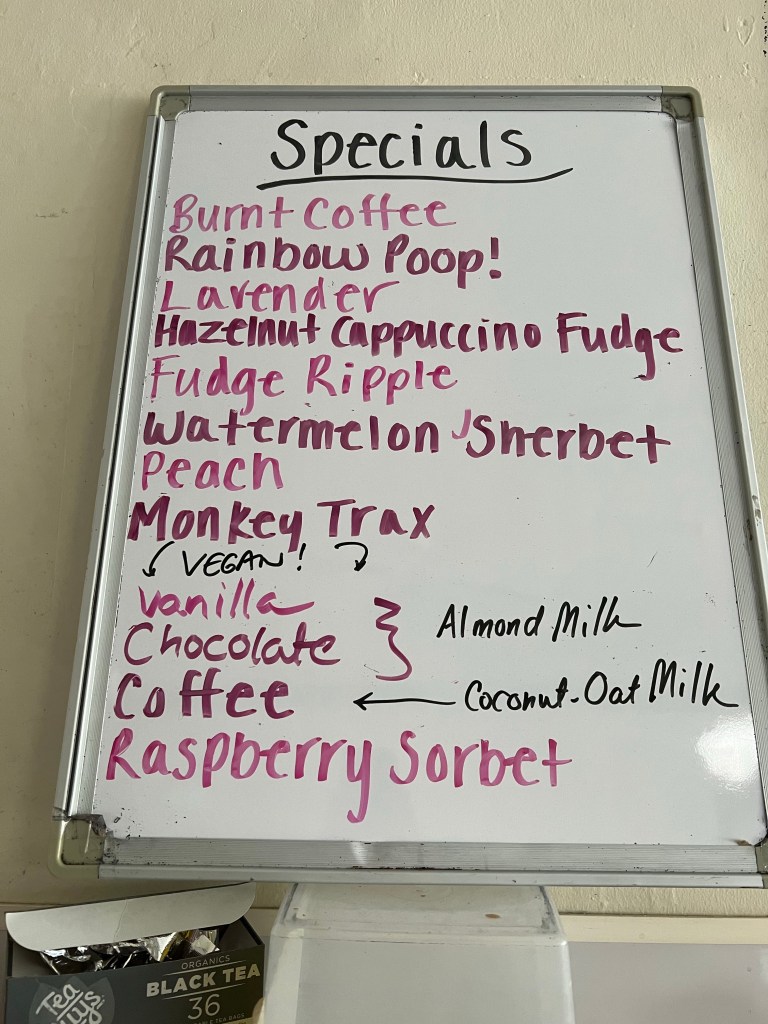 Specials
Burnt Coffee
Rainbow Poop!
Lavender
Hazelnut Cappuccino Fudge
Fudge Ripple
Watermelon Sherbet
Peach
Monkey Trax
VEGAN!
Vanilla
Chocolate
Almond Milk
Coffee
Coconut-Oat Milk
Raspberry Sorbet
ORGANICS
BLACK TEA
36
TEA BAGS
Tea